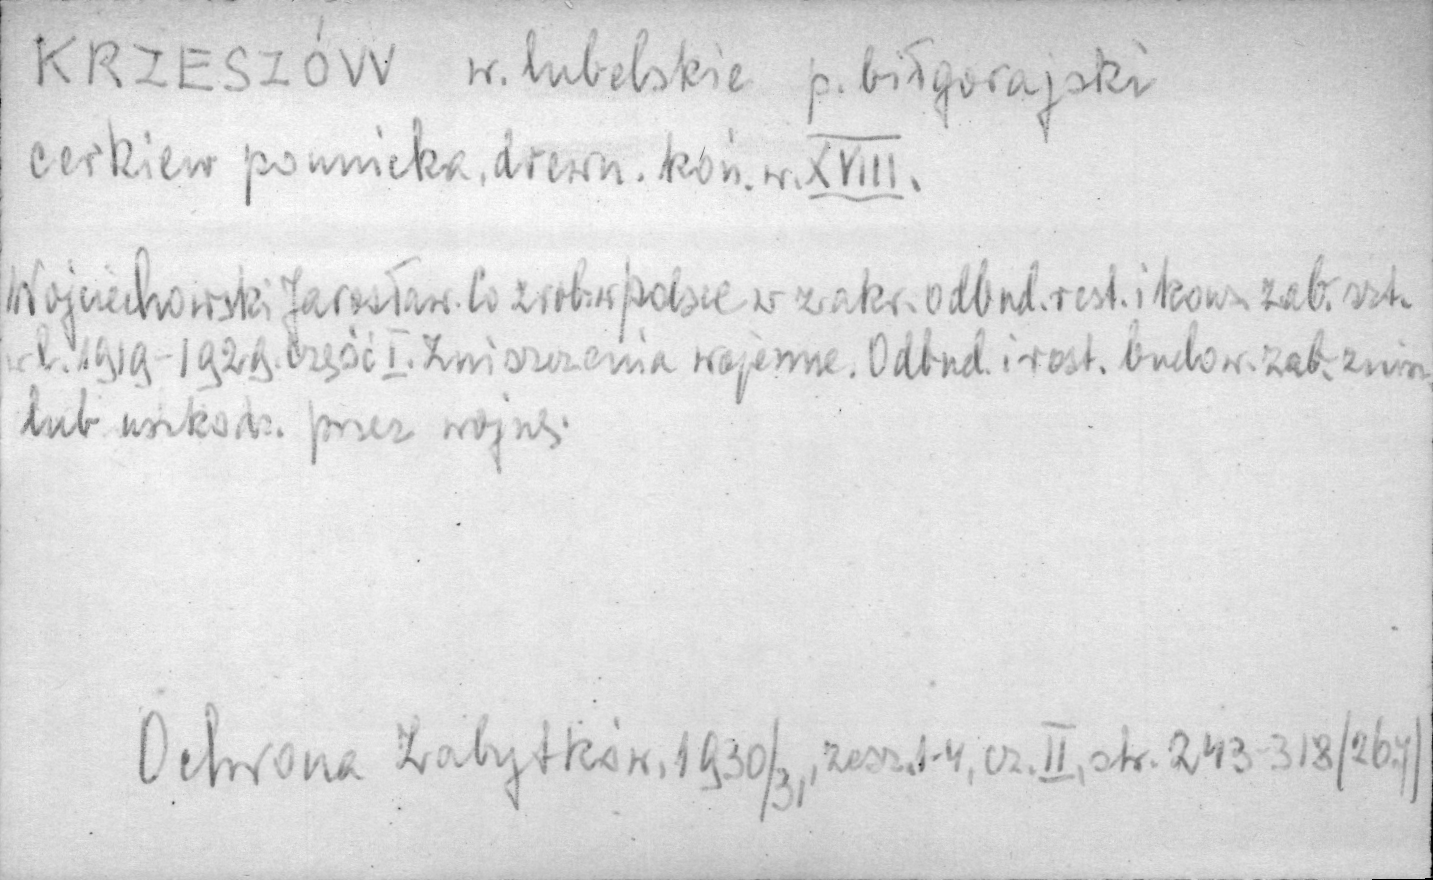 KRZESZÓW w. lubelskie p. biłgorajski
cerkiew pounicka, drewn. koń. w. XVIII.
Wojciechowski Jarosław. Co zrob. w Polsce w zakr. odbud. rest. i kons. zab. szt.
w l. 1919-1929. Część I. Zniszczenia wojenne. Odbud. i rest. budow. zab. znisz.
lub uszkodz. przez wojnę.
Ochrona Zabytków, 1930/31, zesz. 1-4, cz. II, str. 243-318 (267)